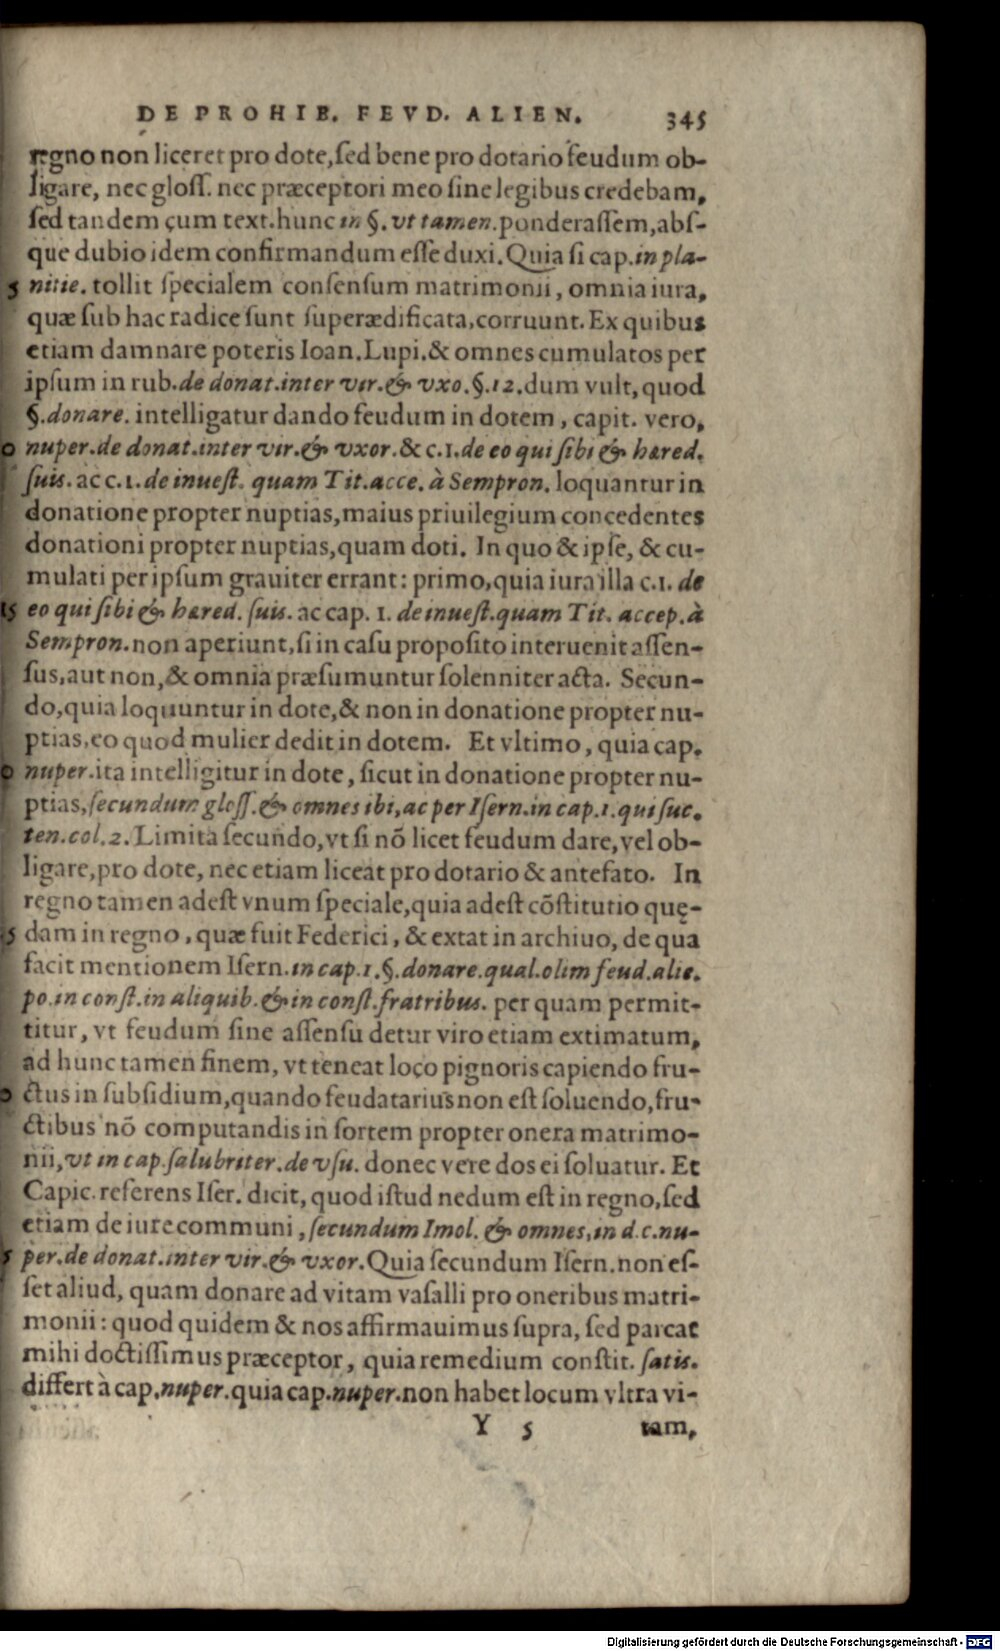 DE PROHIB. FEVD. ALIEN. 345
regno non liceret pro dote, sed bene pro dotario feudum ob-
ligare, nec gloss. nec præceptori meo sine legibus credebam,
sed tandem cum text. hunc in §. vt tamen. ponderassem, abs-
que dubio idem confirmandum esse duxi. Quia si cap. in pla-
5 nitie. tollit specialem consensum matrimonii, omnia iura,
quæ sub hac radice sunt superædificata, corruunt. Ex quibus
etiam damnare poteris Ioan. Lupi. & omnes cumulatos per
ipsum in rub. de donat. inter vir. & vxo. §. 12. dum vult, quod
§. donare. intelligatur dando feudum in dotem, capit. vero,
0 nuper. de donat. inter vir. & vxor. & c. 1. de eo qui sibi & hæred.
suis. ac c. 1. de inuest. quam Tit. acce. à Sempron. loquantur in
donatione propter nuptias, maius priuilegium concedentes
donationi propter nuptias, quam doti. In quo & ipse, & cu-
mulati per ipsum grauiter errant: primo, quia iura illa c. 1. de
15 eo qui sibi & hæred. suis. ac cap. 1. de inuest. quam Tit. accep. à
Sempron. non aperiunt, si in casu proposito interuenit assen-
sus, aut non, & omnia præsumuntur solenniter acta. Secun-
do, quia loquuntur in dote, & non in donatione propter nu-
ptias, eo quod mulier dedit in dotem. Et vltimo, quia cap.
0 nuper. ita intelligitur in dote, sicut in donatione propter nu-
ptias, secundum gloss. & omnes ibi, ac per Isern. in cap. 1. qui suc.
ten. col. 2. Limita secundo, vt si nõ licet feudum dare, vel ob-
ligare, pro dote, nec etiam liceat pro dotario & antefato. In
regno tamen adest vnum speciale, quia adest cõstitutio quę-
5 dam in regno, quæ fuit Federici, & extat in archiuo, de qua
facit mentionem Isern. in cap. 1. §. donare. qual. olim feud. alie.
po. in const. in aliquib. & in const. fratribus. per quam permit-
titur, vt feudum sine assensu detur viro etiam extimatum,
ad hunc tamen finem, vt teneat loco pignoris capiendo fru-
0 ctus in subsidium, quando feudatarius non est soluendo, fru-
ctibus nõ computandis in sortem propter onera matrimo-
nii, vt in cap. salubriter. de vsu. donec vere dos ei soluatur. Et
Capic. referens Iser. dicit, quod istud nedum est in regno, sed
etiam de iure communi, secundum Imol. & omnes, in d. c. nu-
5 per. de donat. inter vir. & vxor. Quia secundum Isern. non es-
set aliud, quam donare ad vitam vasalli pro oneribus matri-
monii: quod quidem & nos affirmauimus supra, sed parcat
mihi doctissimus præceptor, quia remedium constit. satis.
differt à cap. nuper. quia cap. nuper. non habet locum vltra vi-
Y 5 tam,
Digitalisierung gefördert durch die Deutsche Forschungsgemeinschaft - DFG